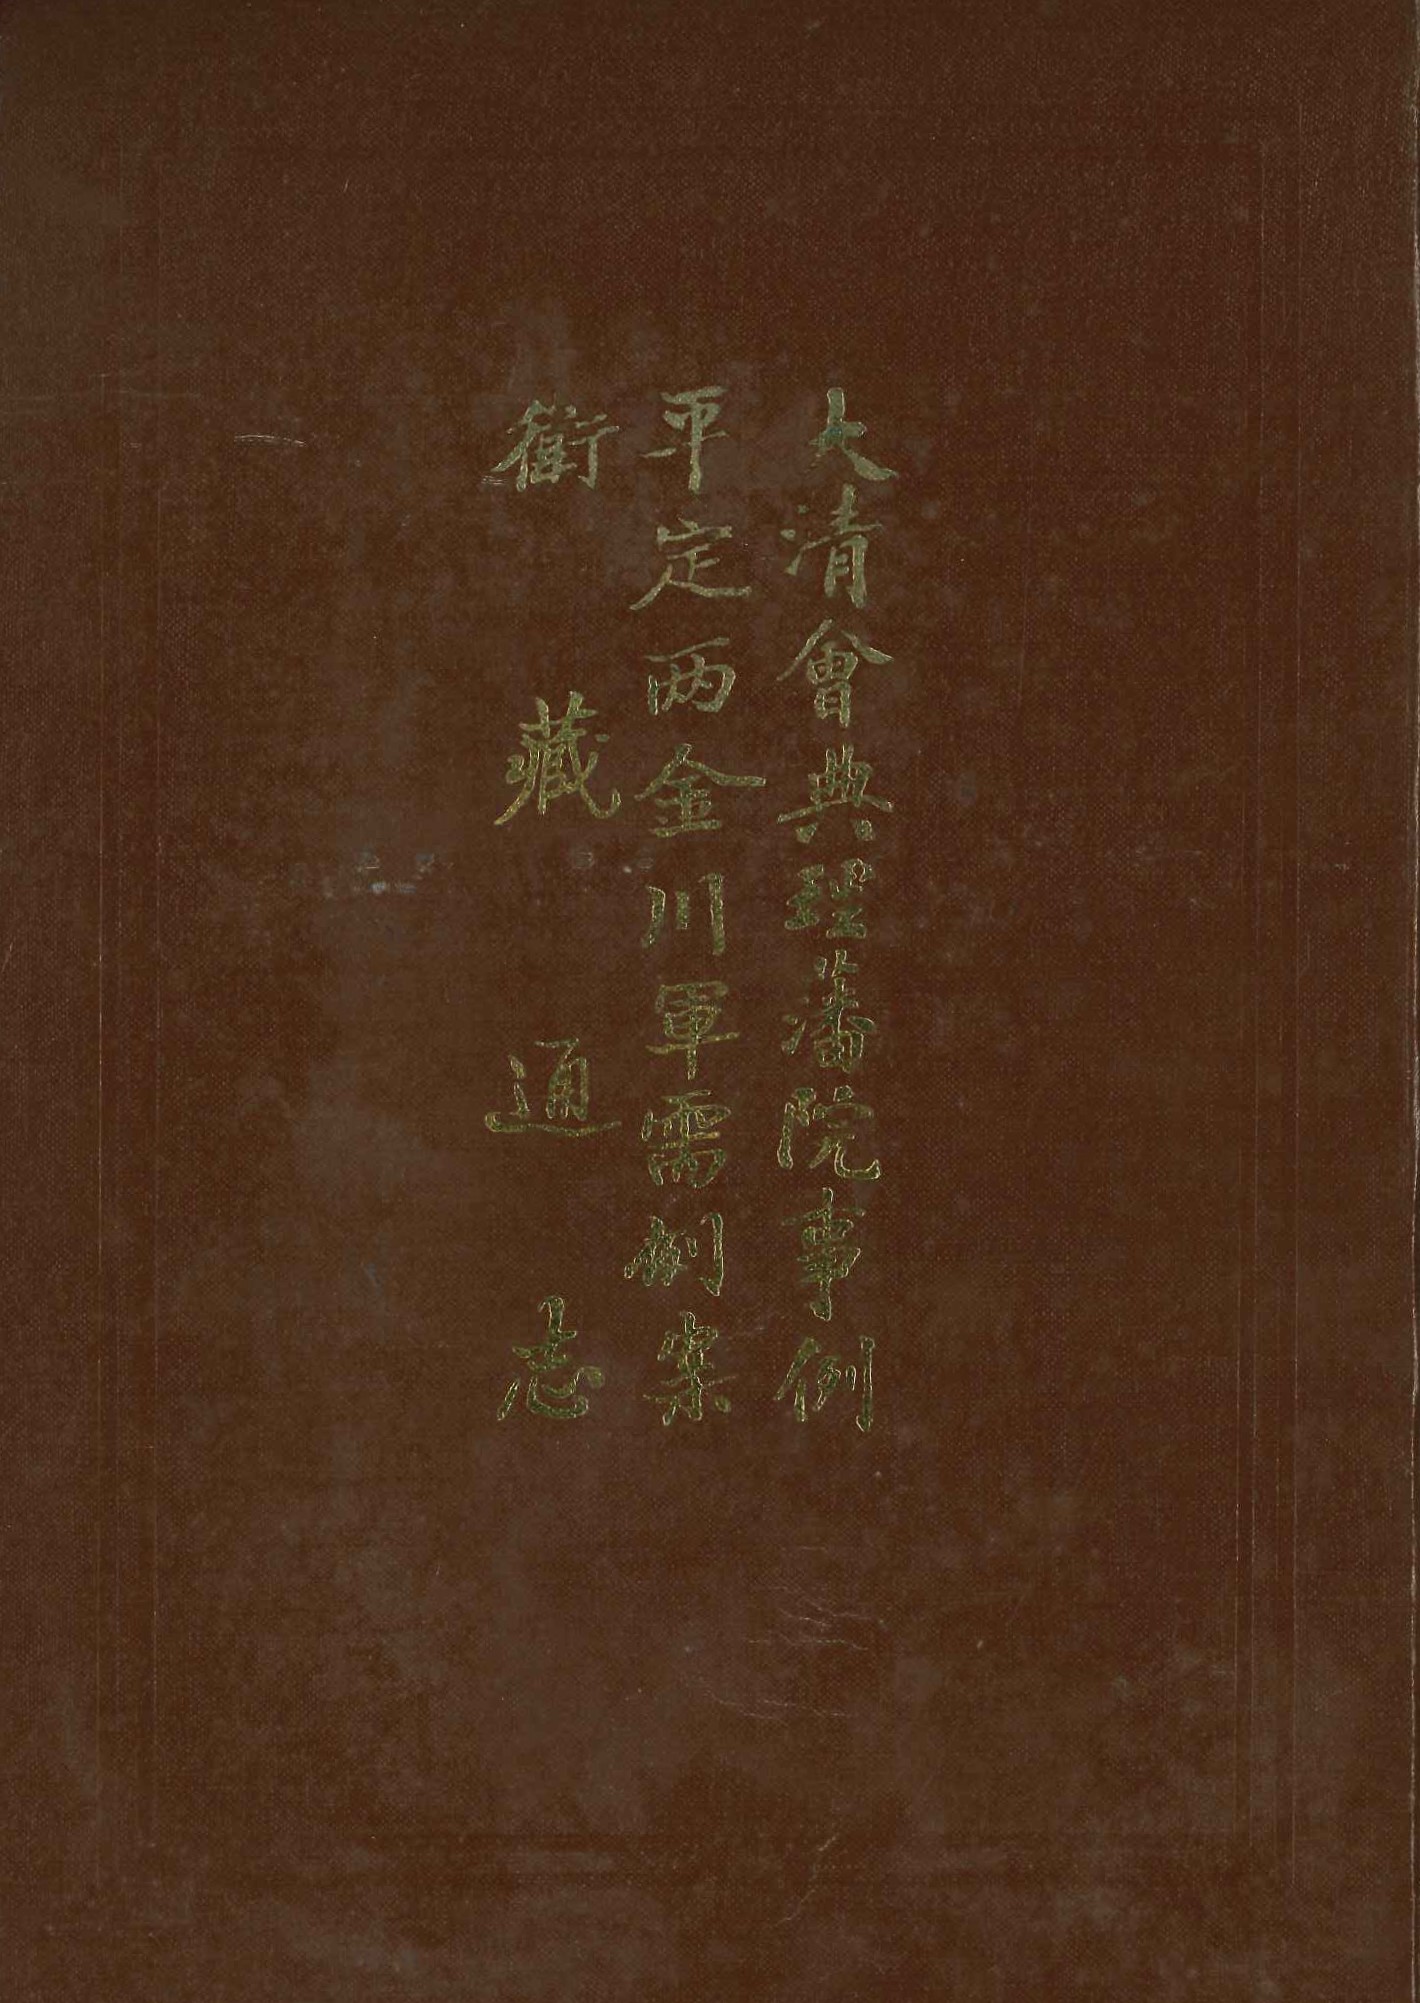 大清會典理藩院事例
平定两金川軍需例案
衛藏通志